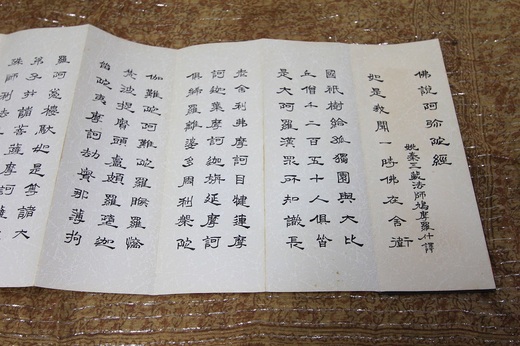 佛說阿弥陀經
姚秦三藏法師鳩摩羅什譯
如是我聞一時佛在舍衛
國祇樹給孤獨園與大比
丘僧千二百五十人俱皆
是大阿羅漢眾所知識長
老舍利弗摩訶目犍連摩
訶迦葉摩訶迦旃延摩訶
俱絺羅離婆多周利槃陀
伽難陀阿難陀羅睺羅憍
梵波提賓頭盧頗羅墮迦
留陀夷摩訶劫賓那薄拘
羅阿㝹樓馱如是等諸大
弟子并諸菩薩摩訶薩
殊師利法